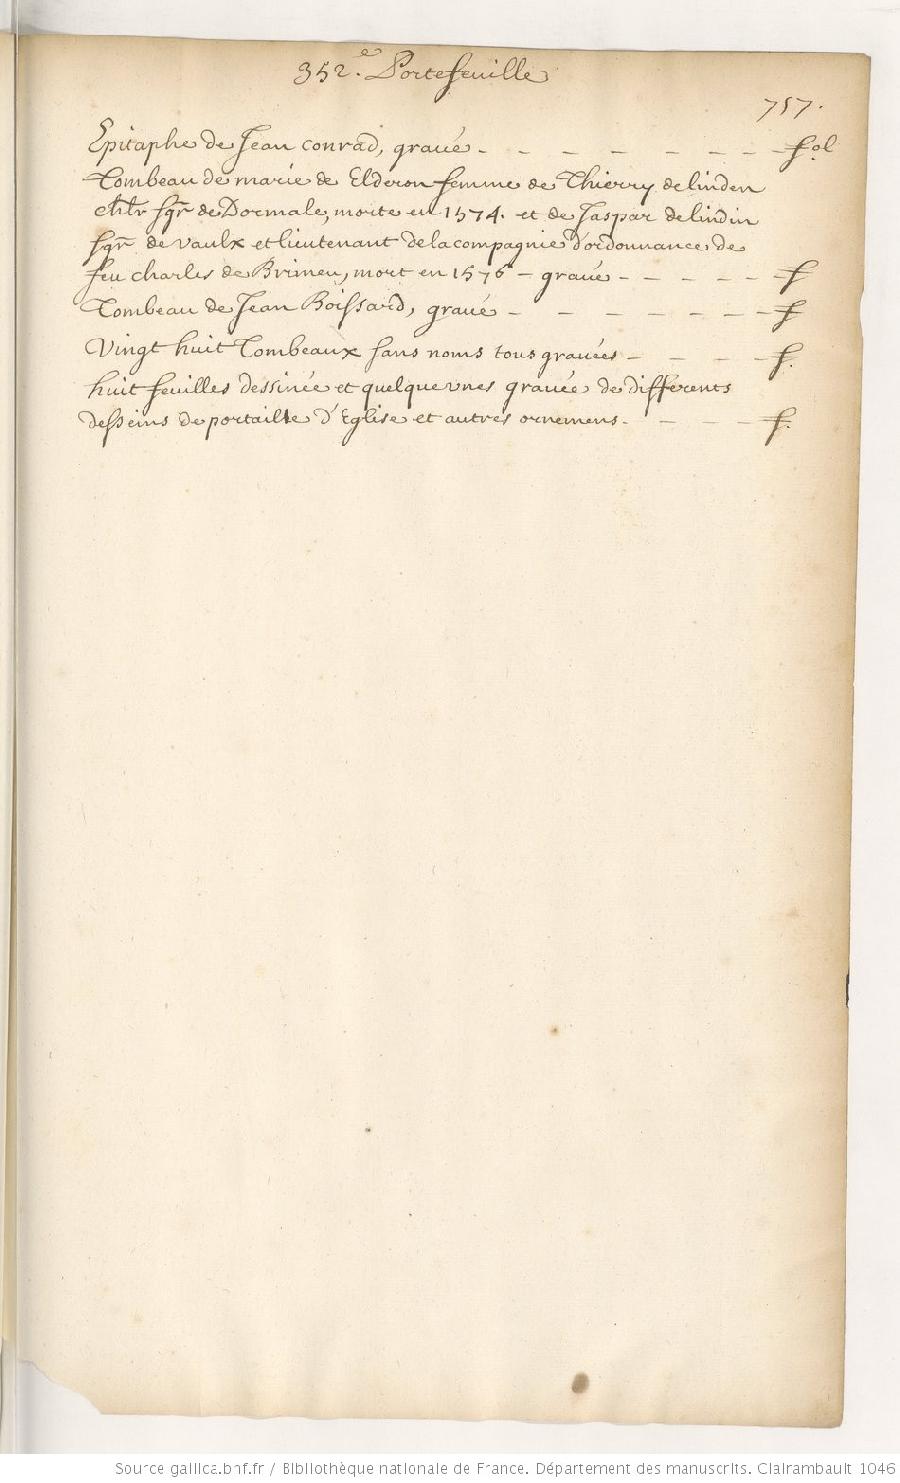 352.e Portefeuille
757.
Epitaphe de Jean conrad, gravé - - - - - - - - fol
Tombeau de marie de Elderon femme de Thierry de linden
chlr sgr de Dormale, morte en 1574. et de Jaspar de lindin
sgr de vaulx et lieutenant de la compagnie d'ordonnance de
feu charles de Brimeu, mort en 1576 - gravé - - - - - f
Tombeau de Jean Boissard, gravé - - - - - - - f
Vingt huit Tombeaux sans noms tous gravées - - - - f.
huit feuilles dessinée et quelque unes gravée de différents
desseins de portaille d'Eglise et autres ornemens. - - - f.
Source gallica.bnf.fr / Bibliothèque nationale de France. Département des manuscrits. Clairambault 1046